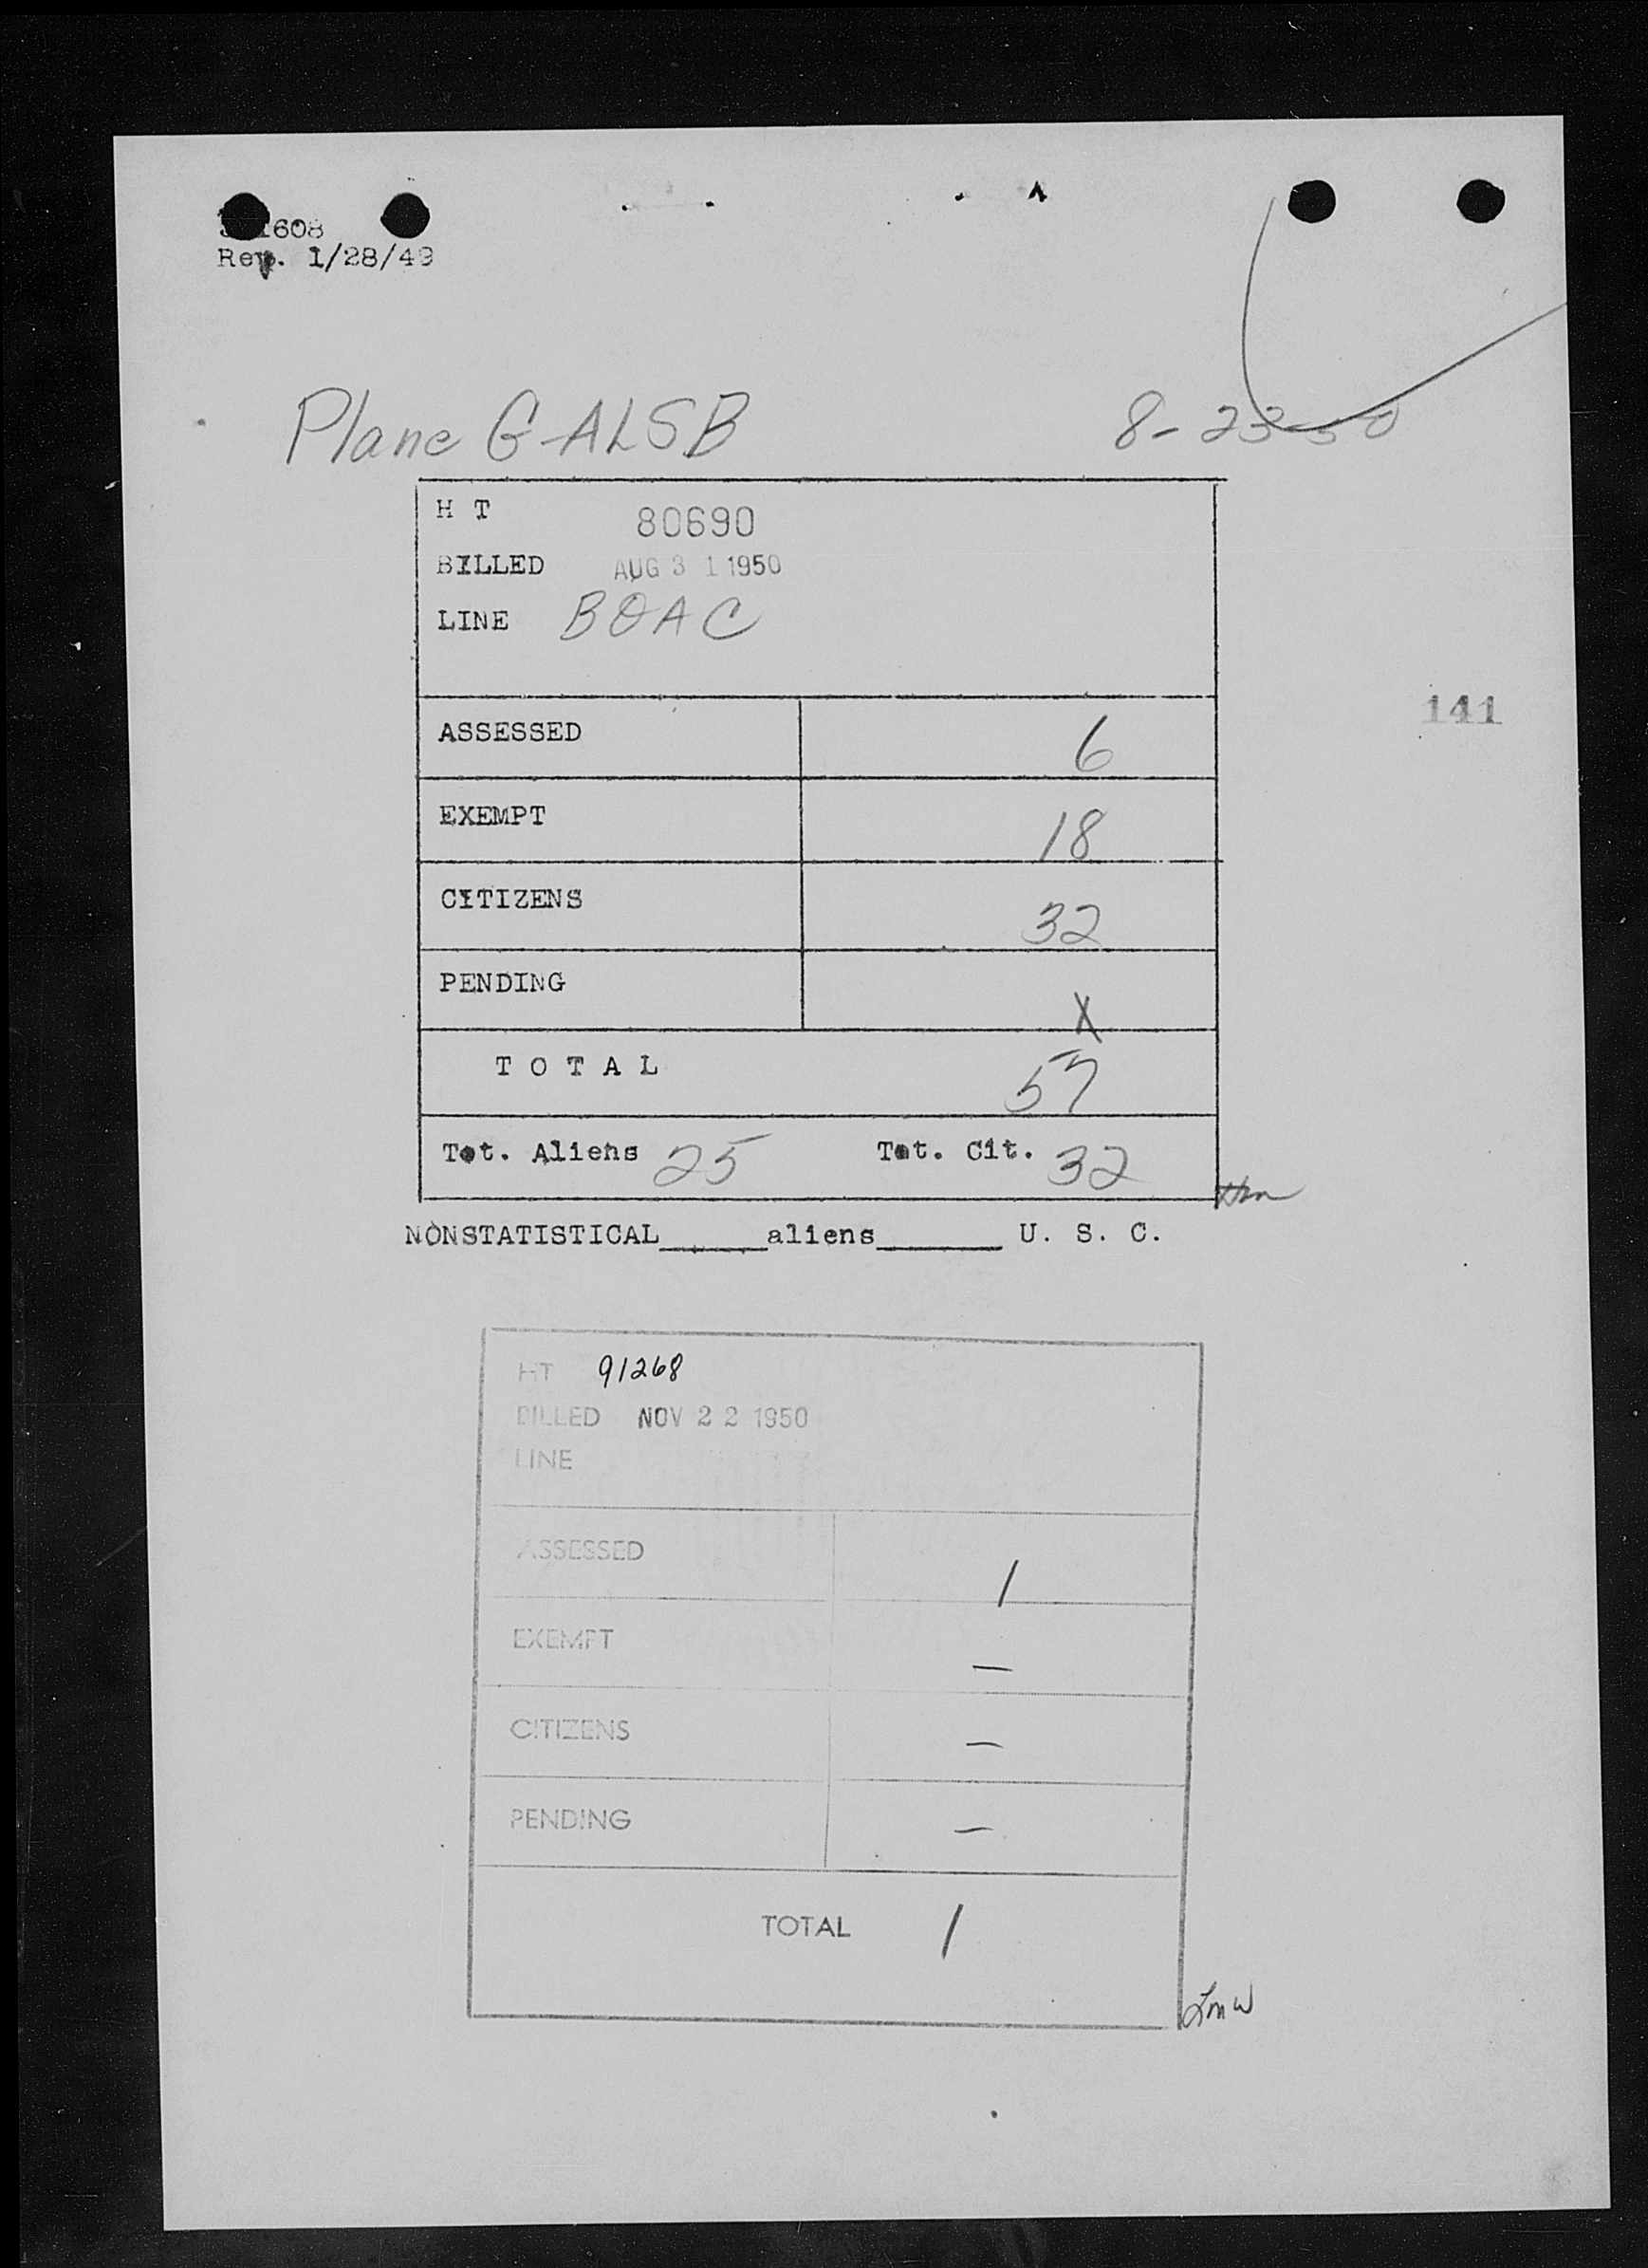 1608
Rev. 1/28/49
Plane G-ALSB 8-23-50
H T 80690
BILLED AUG 31 1950
LINE BOAC
141
ASSESSED 6
EXEMPT 18
CITIZENS 32
PENDING X
T O T A L 57
Tot. Aliens 25 Tot. Cit. 32
NONSTATISTICAL_____aliens______ U. S. C.
HT 91268
BILLED NOV 22 1950
LINE
ASSESSED 1
EXEMPT —
CITIZENS —
PENDING —
TOTAL 1
LMW